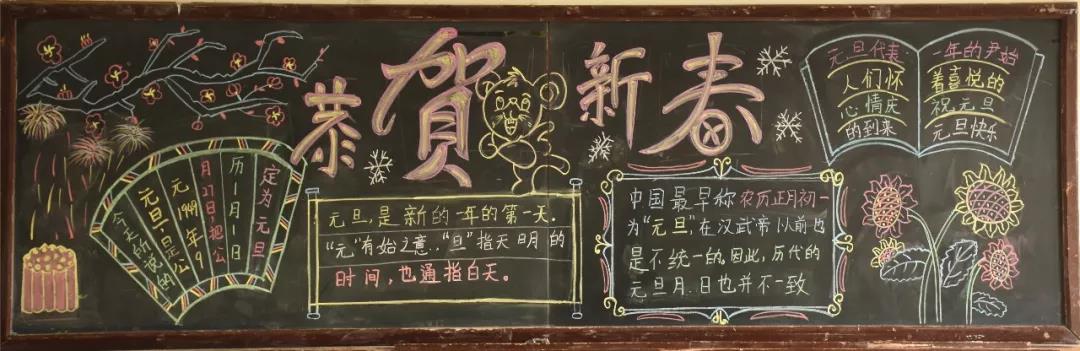 恭贺新春
今天所说的
元旦,是公
元1949年9
月27日把公
历1月1日
定为元旦
元旦,是新的一年的第一天。
“元”有始之意,“旦”指天明的
时间,也通指白天。
中国最早称农历正月初一
为“元旦”,在汉武帝以前也
是不统一的。因此,历代的
元旦月、日也并不一致
元旦代表
人们怀
心情庆
的到来
一年的尹始
着喜悦的
祝元旦
元旦快乐